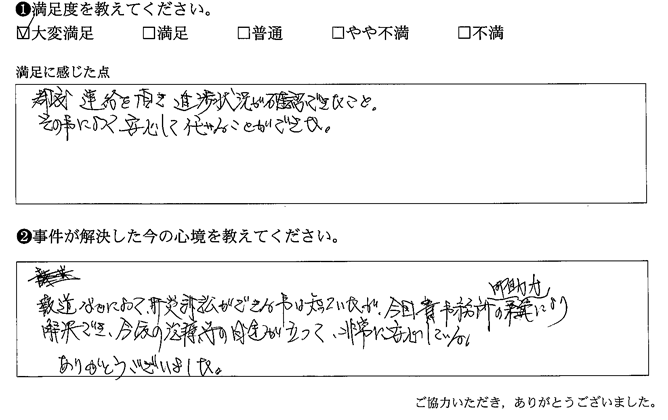 ❶満足度を教えてください。
☑大変満足 □満足 □普通 □やや不満 □不満
満足に感じた点
都度 連絡を頂き 進渉状況が確認できたこと。
その事によって安心して任せることができた。
❷事件が解決した今の心境を教えてください。
御助力
報道などによって、肝炎訴訟ができる事は知っていたが、今回貴事務所の により
解決でき、今後の治療等の目途が立って、非常に安心している。
ありがとうございました。
ご協力いただき，ありがとうございました。